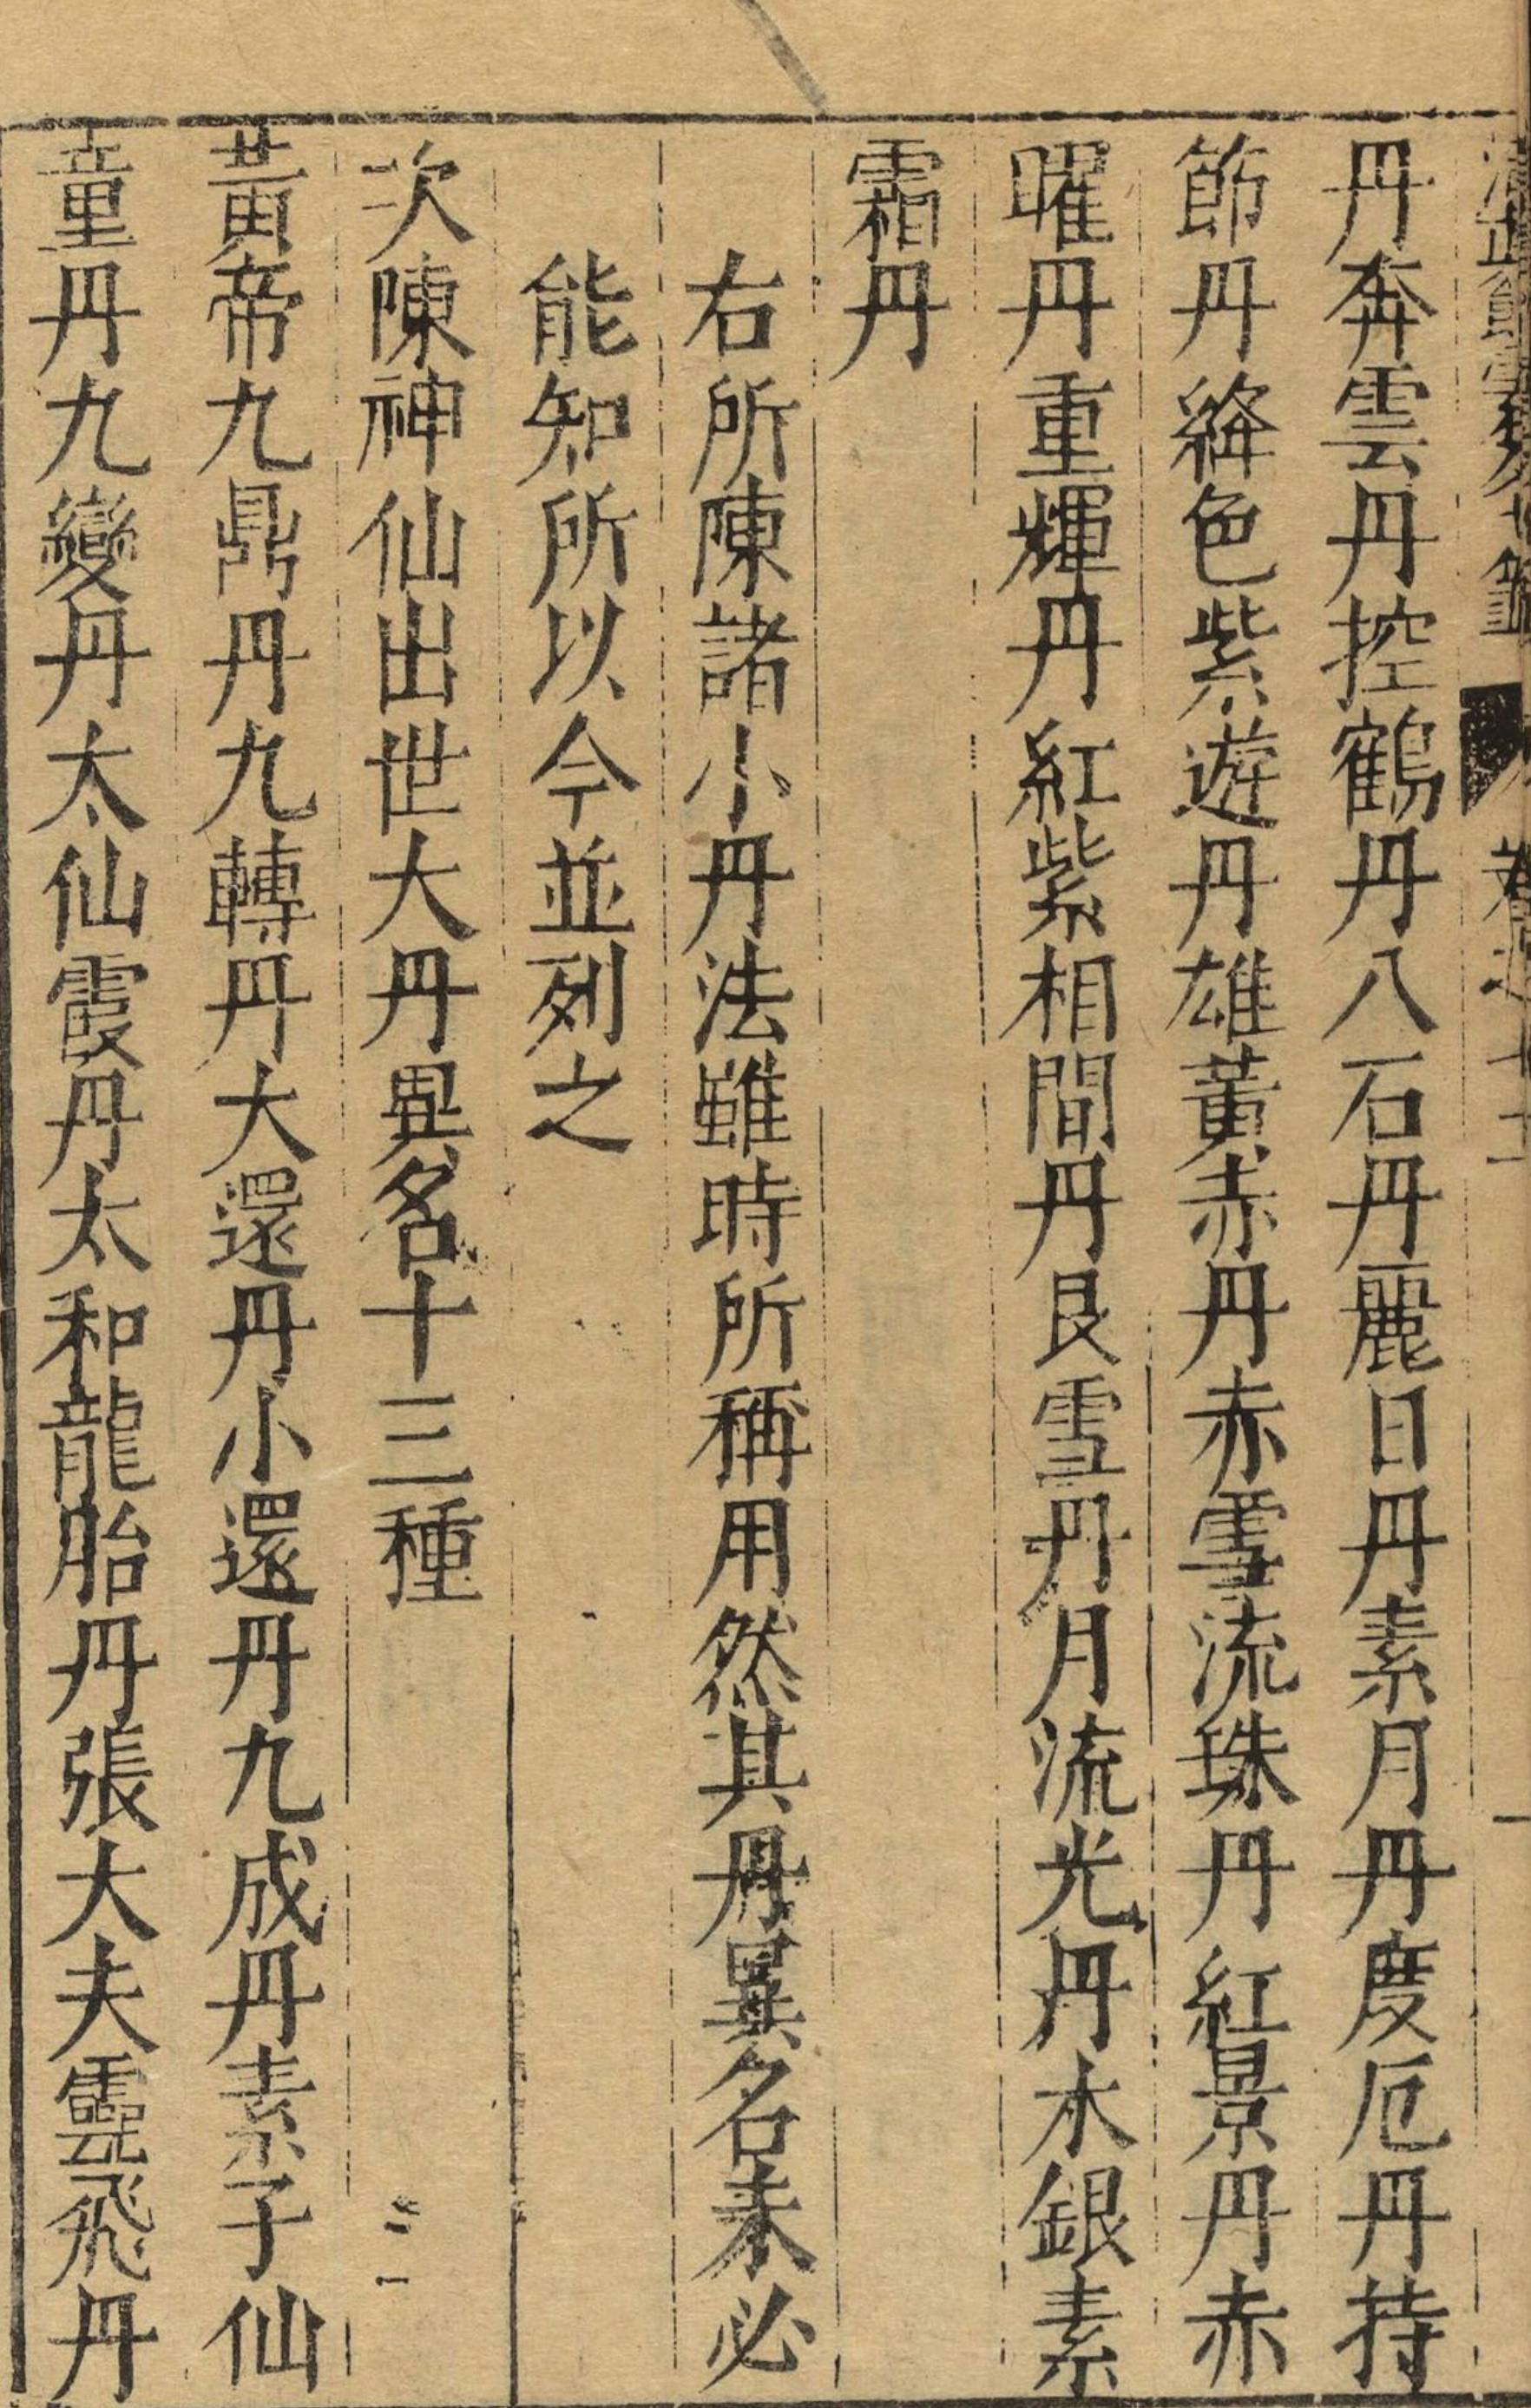 丹奔雲丹控鶴丹八石丹麗日丹素月丹度厄丹持
節丹絳色紫遊丹雄黃赤丹赤雪流珠丹紅景丹赤
曜丹重輝丹紅紫相間丹艮雪丹月流光丹木銀素
霜丹
右所陳諸小丹法雖時所稱用然其丹異名未必
能知所以今並列之
次陳神仙出世大丹異名十三種
黃帝九鼎丹九轉丹大還丹小還丹九成丹素子仙
童丹九變丹太仙霞丹太和龍胎丹張大夫靈飛丹